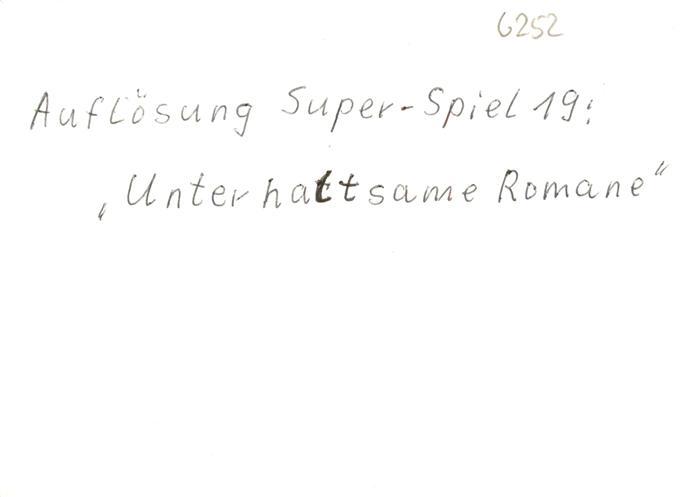 6252
Auflösung Super-Spiel 19:
„Unterhaltsame Romane“